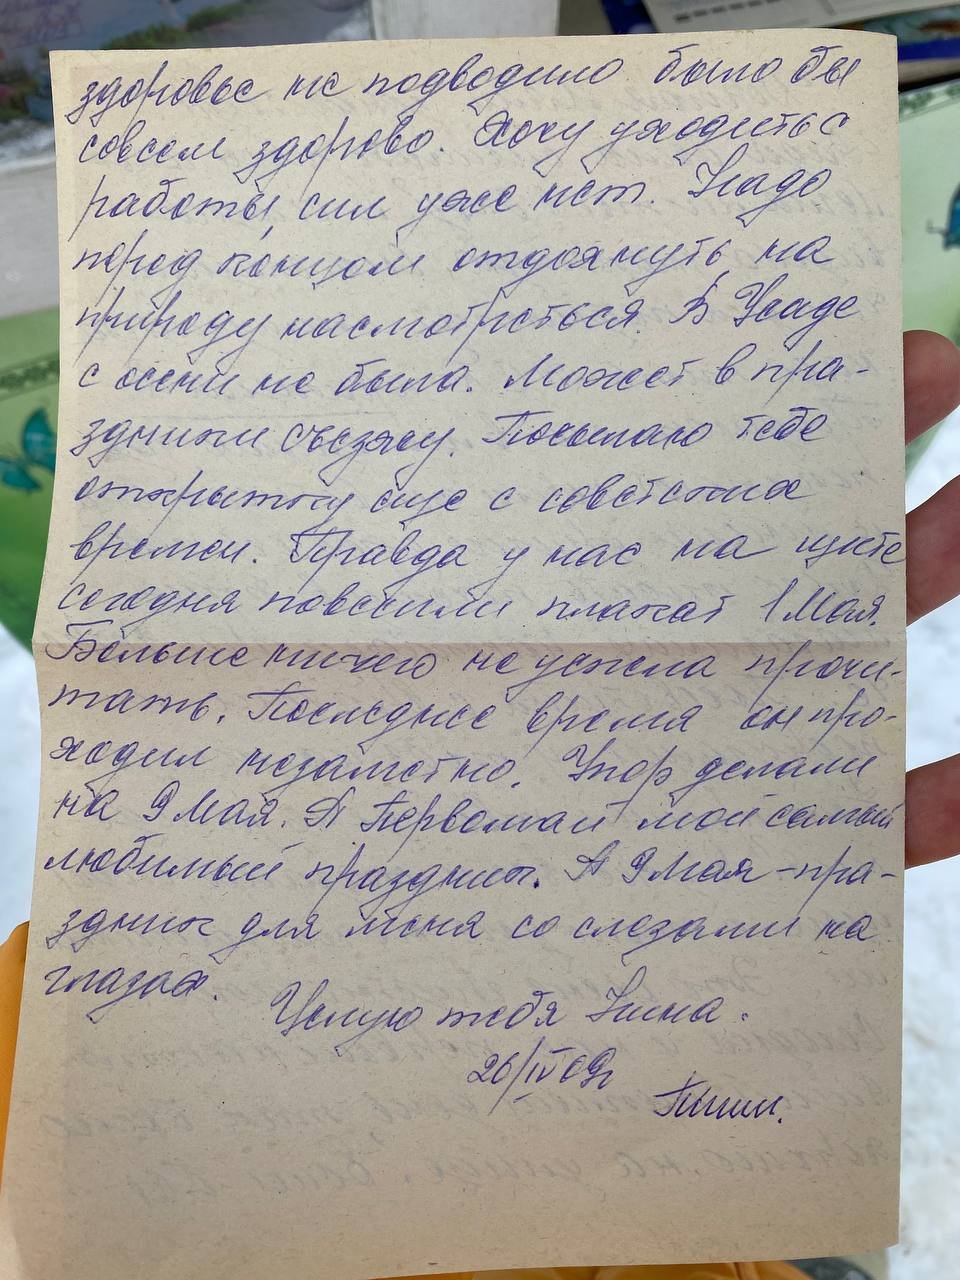 здоровье не подводило было бы
совсем здорово. Хочу уходить с
работы, сил уже нет. Надо
перед концом отдохнуть, на
природу насмотреться. В Усаде
с осени не была. Может в пра-
здники съезжу. Посылаю тебе
открытку еще с советских
времен. Правда у нас на щите
сегодня повесили плакат 1 Мая.
Больше ничего не успела прочи-
тать. Последнее время он про-
ходил незаметно. Упор делали
на 9 Мая. А Первомай мой самый
любимый праздник. А 9 Мая - пра-
здник для меня со слезами на
глазах.
Целую тебя Нина.
26/IV 09г
Пиши.